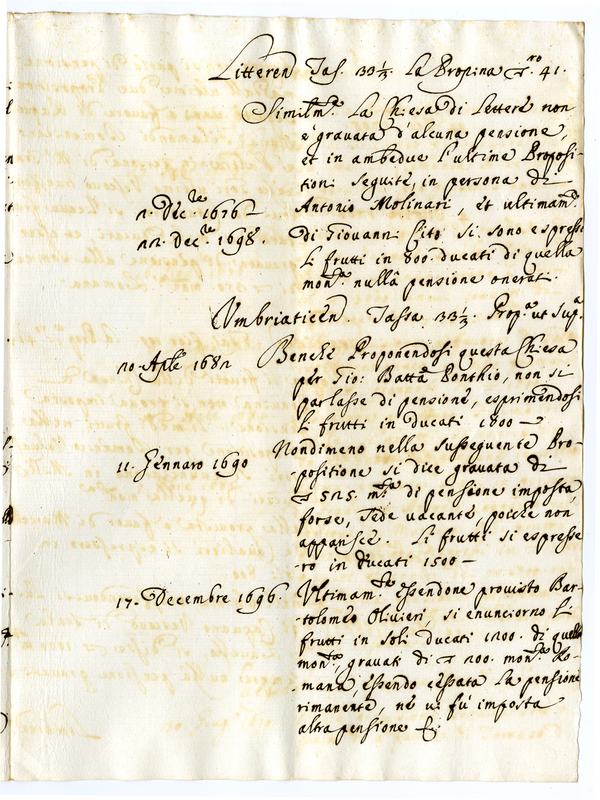 Litteren Tas. 33⅓. La Propina ▽ro 41.
Similmte. La Chiesa di Lettere non
è gravata d'alcuna pensione,
et in ambedue l'ultime Proposi-
tioni seguite, in persona di
2. Decre. 1676 - Antonio Molinari, et ultimamte.
22. Decre. 1698. di Giovanni Cito si sono espressi
li frutti in 800. ducati di quella
monta. nullâ pensione onerati.
Umbriaticen. Tassa 33⅓. Propa. ut supa.
20. Aprle 1682 Benche Proponendosi questa Chiesa
per Gio: Batta Ponthio, non si
parlasse di pensione, esprimendosi
li frutti in ducati 1800 -
11. Gennaro 1690 Nondimeno nella susseguente Pro-
-positione si dice gravata di
▽ 525. mta. di pensione imposta
forse, Sede vacante, poiche non
apparisce. Li frutti si espresse-
-ro in ducati 1500 -
17. Decembre 1696. Ultimamte. essendone provisto Bar-
-tolomeo Olivieri, si enunciorno li
frutti in soli ducati 1200. di quella
monta., gravati di ▽ 200. monta. Ro-
mana, essendo cessata la pensione
rimanente, ne vi fù imposta
altra pensione &.